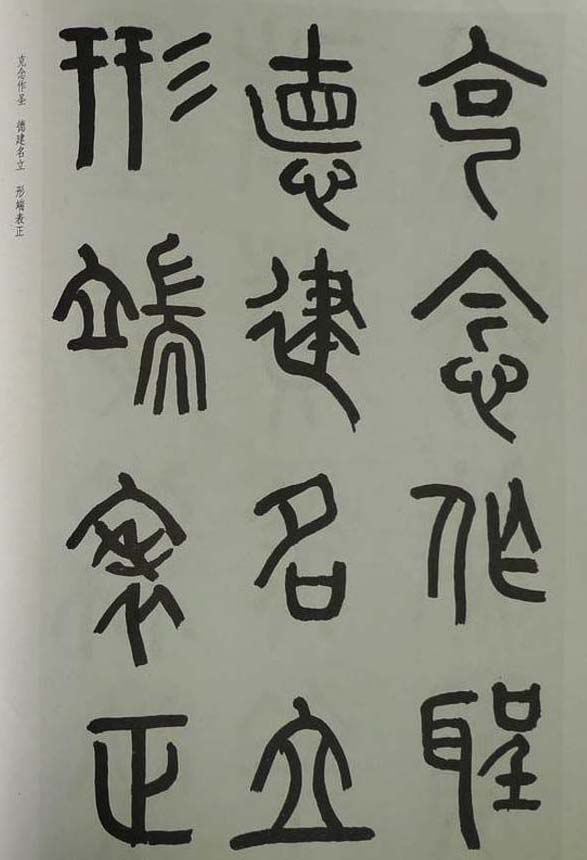 克念作聖
德建名立
形端表正
克念作圣 德建名立 形端表正